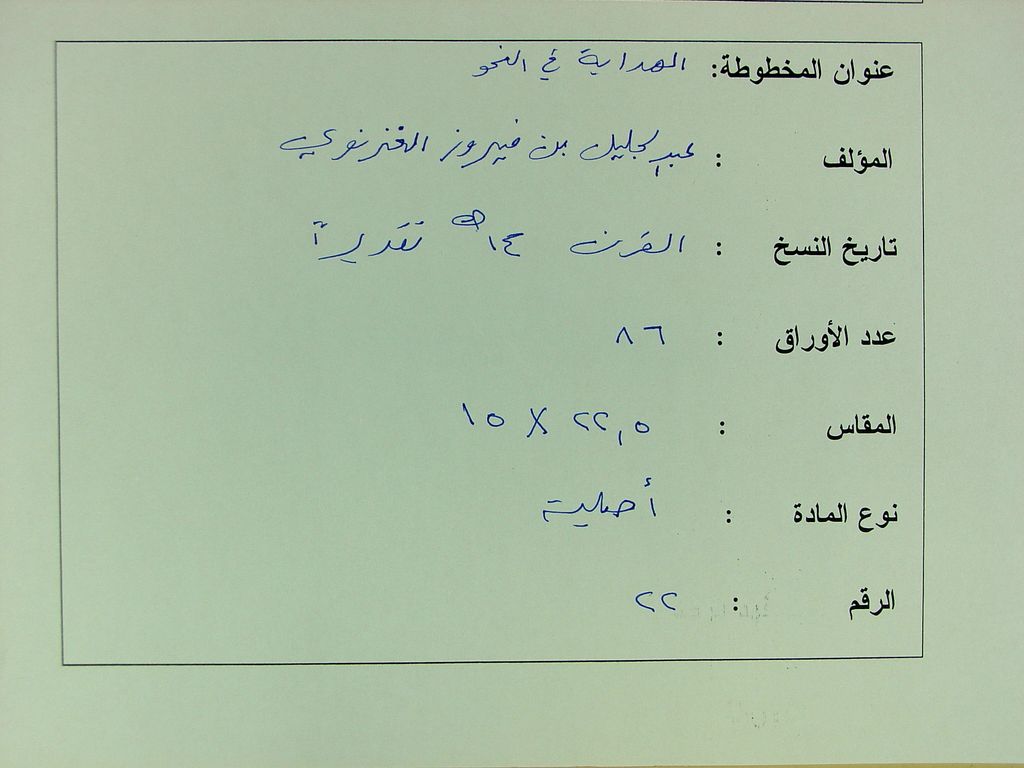 عنوان المخطوطة: الهداية في النحو
المؤلف : عبدالجليل بن فيروز الغزنوي
تاريخ النسخ : القرن ١٤هـ تقديراً
عدد الأوراق : ٨٦
المقاس : ٢٢,٥ X ١٥
نوع المادة : أصلية
الرقم : ٢٢